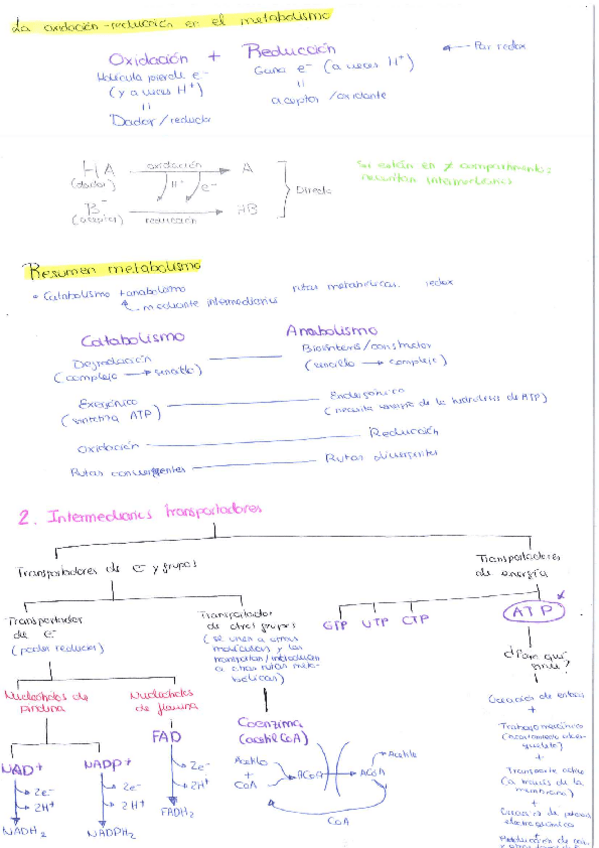 La oxidación-reducción en el metabolismo
Oxidación + Reducción
← Par redox
Molécula pierde e⁻
(y a veces H⁺)
=
Dador/reductor
Gana e⁻ (a veces H⁺)
=
aceptor/oxidante
HA oxidación → A
(dador) H⁺ e⁻
B⁻ reducción → HB
(aceptor)
Directo
Si están en ≠ compartimento:
necesitan intermediarios
Resumen metabolismo
• Catabolismo + anabolismo rutas metabólicas. redox
mediante intermediarios
Catabolismo Anabolismo
Degradación — Biosíntesis/constructor
(complejo → sencillo) (sencillo → complejo)
Exergónico — Endergónico
(sintetiza ATP) (necesita energía de la hidrólisis de ATP)
Oxidación — Reducción
Rutas convergentes — Rutas divergentes
2. Intermediarios transportadores
Transportadores de e⁻ y grupos
Transportadores
de energía
Transportador
de e⁻
(poder reductor)
Transportador
de otros grupos
(se unen a otras
moléculas y las
transportan/introducen
a otras rutas meta-
bólicas)
GTP UTP CTP ATP *
¿Para qué
sirve?
Nucleótidos de
piridina
Nucleótidos
de flavina
FAD
2e⁻
2H⁺
FADH₂
NAD⁺
2e⁻
2H⁺
NADH₂
NADP⁺
2e⁻
2H⁺
NADPH₂
Coenzima
(acetil CoA)
Acetilo
+
CoA
ACoA → ACoA
Acetilo
CoA
Creación de enlaces
+
Trabajo mecánico
+
Transporte activo
(a través de la
membrana)
+
Creación de
electroquímico
+
Producción de